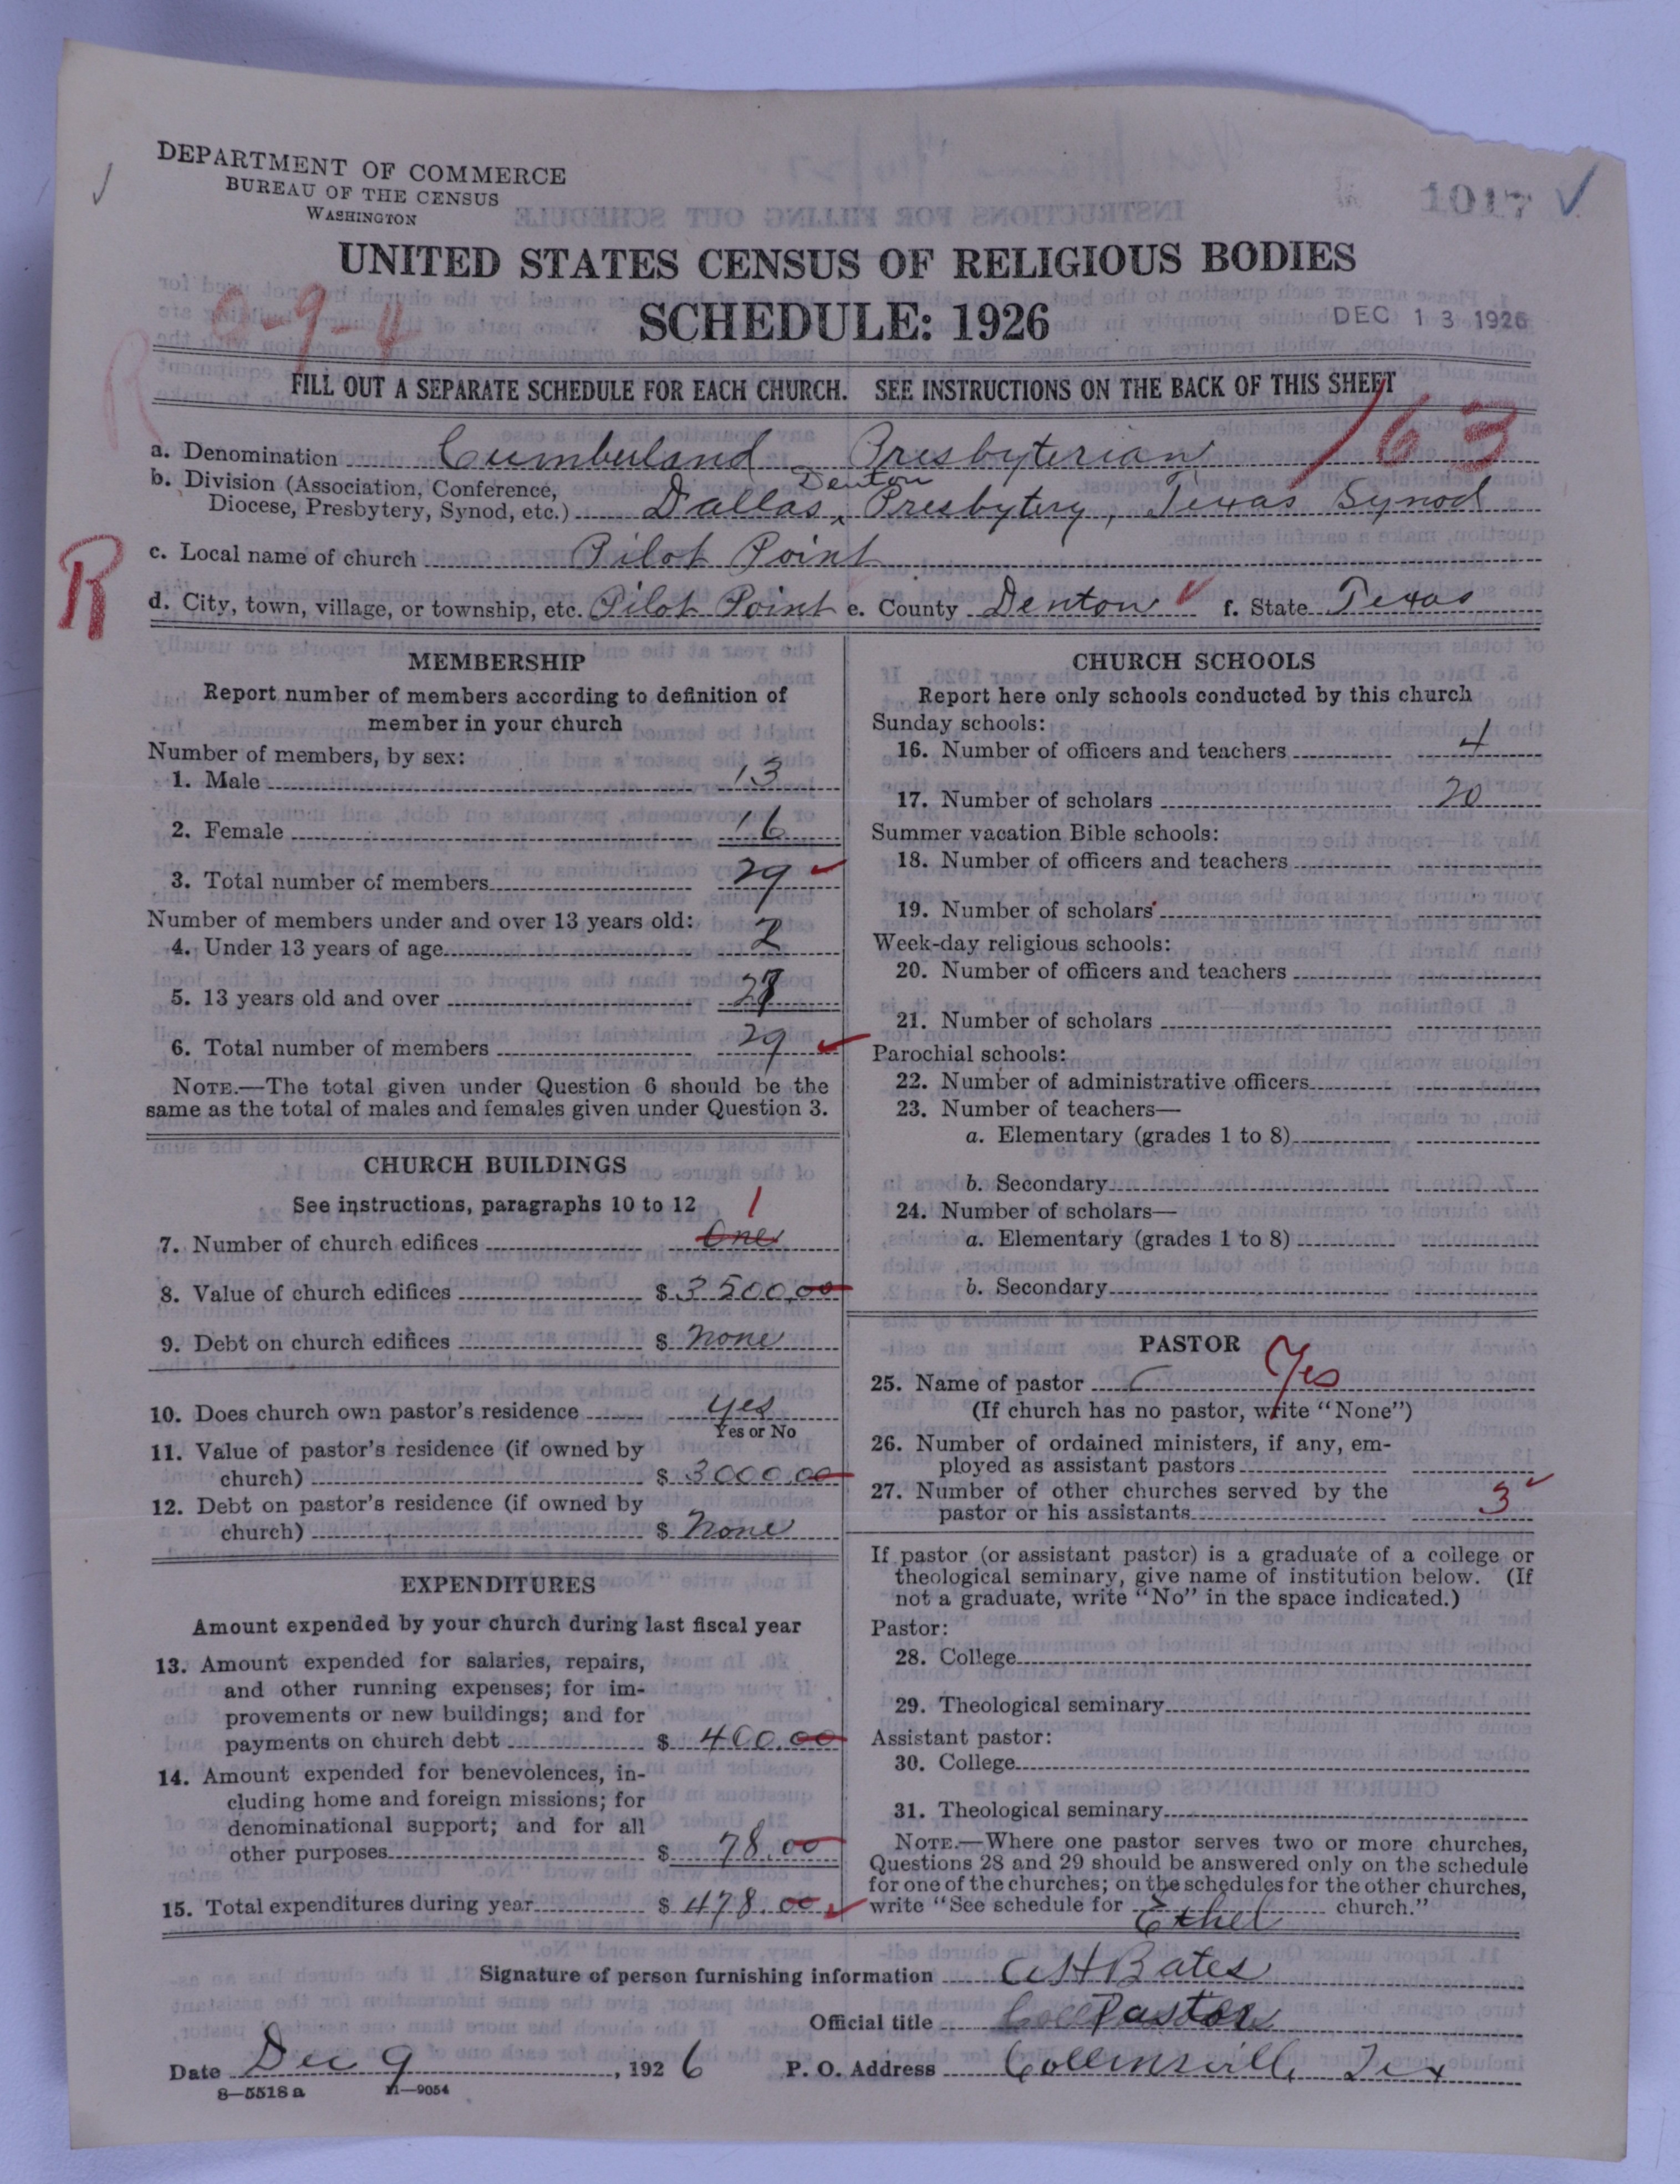 DEPARTMENT OF COMMERCE
BUREAU OF THE CENSUS
WASHINGTON
1017 ✓
UNITED STATES CENSUS OF RELIGIOUS BODIES
SCHEDULE: 1926
DEC 13 1926
0-9-4
R
FILL OUT A SEPARATE SCHEDULE FOR EACH CHURCH. SEE INSTRUCTIONS ON THE BACK OF THIS SHEET
163
a. Denomination Cumberland Presbyterian
b. Division (Association, Conference, Denton
Diocese, Presbytery, Synod, etc.) Dallas, Presbytery, Texas Synod
R
c. Local name of church Pilot Point
d. City, town, village, or township, etc. Pilot Point e. County Denton ✓ f. State Texas
MEMBERSHIP
Report number of members according to definition of
member in your church
Number of members, by sex:
1. Male 13
2. Female 16
3. Total number of members 29 ✓
Number of members under and over 13 years old:
4. Under 13 years of age 2
5. 13 years old and over 27
6. Total number of members 29 ✓
NOTE.—The total given under Question 6 should be the
same as the total of males and females given under Question 3.
CHURCH BUILDINGS
See instructions, paragraphs 10 to 12 1
7. Number of church edifices One
8. Value of church edifices $ 3500.00
9. Debt on church edifices $ None
10. Does church own pastor's residence yes
Yes or No
11. Value of pastor's residence (if owned by
church) $ 3000.00
12. Debt on pastor's residence (if owned by
church) $ None
EXPENDITURES
Amount expended by your church during last fiscal year
13. Amount expended for salaries, repairs,
and other running expenses; for im-
provements or new buildings; and for
payments on church debt $ 400.00
14. Amount expended for benevolences, in-
cluding home and foreign missions; for
denominational support; and for all
other purposes $ 78.00
15. Total expenditures during year $ 478.00 ✓
CHURCH SCHOOLS
Report here only schools conducted by this church
Sunday schools:
16. Number of officers and teachers 4
17. Number of scholars 20
Summer vacation Bible schools:
18. Number of officers and teachers
19. Number of scholars
Week-day religious schools:
20. Number of officers and teachers
21. Number of scholars
Parochial schools:
22. Number of administrative officers
23. Number of teachers—
a. Elementary (grades 1 to 8)
b. Secondary
24. Number of scholars—
a. Elementary (grades 1 to 8)
b. Secondary
PASTOR
25. Name of pastor Yes
(If church has no pastor, write "None")
26. Number of ordained ministers, if any, em-
ployed as assistant pastors
27. Number of other churches served by the
pastor or his assistants 3 ✓
If pastor (or assistant pastor) is a graduate of a college or
theological seminary, give name of institution below. (If
not a graduate, write "No" in the space indicated.)
Pastor:
28. College
29. Theological seminary
Assistant pastor:
30. College
31. Theological seminary
NOTE.—Where one pastor serves two or more churches,
Questions 28 and 29 should be answered only on the schedule
for one of the churches; on the schedules for the other churches,
write "See schedule for Ethel church."
Signature of person furnishing information A H Bates
Official title Pastor
Date Dec 9, 1926 P. O. Address Collinsville Tex
8—5518 a 11—9054